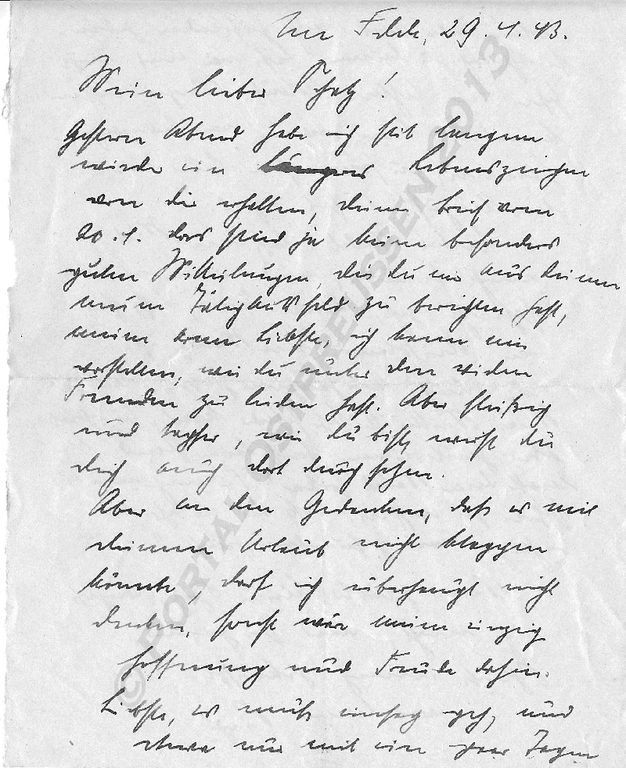 Im Felde, 29.1.43.
Mein lieber Schatz!
Gestern Abend habe ich seit langem
wieder ein Lebenszeichen
von dir erhalten, deinen Brief vom
20.1. das sind ja keine besonders
guten Mitteilungen, die du mir aus deinem
neuen zu berichten hast,
meine arme Liebste, ich kann mir
vorstellen, wie du unter den vielen
Fremden zu leiden hast. Aber fleißig
und tapfer, wie du bist, wirst du
dich auch dort durchsetzen.
Aber an den Gedanken, daß es mit
deinem Urlaub nicht klappen
könnte, darf ich überhaupt nicht
denken, sonst wär meine einzig
Hoffnung und Freude dahin.
Liebste, es muß einfach gehn, und
etwa nur mit ein paar Tagen
© PORTAL-OSTPREUSSEN 2013